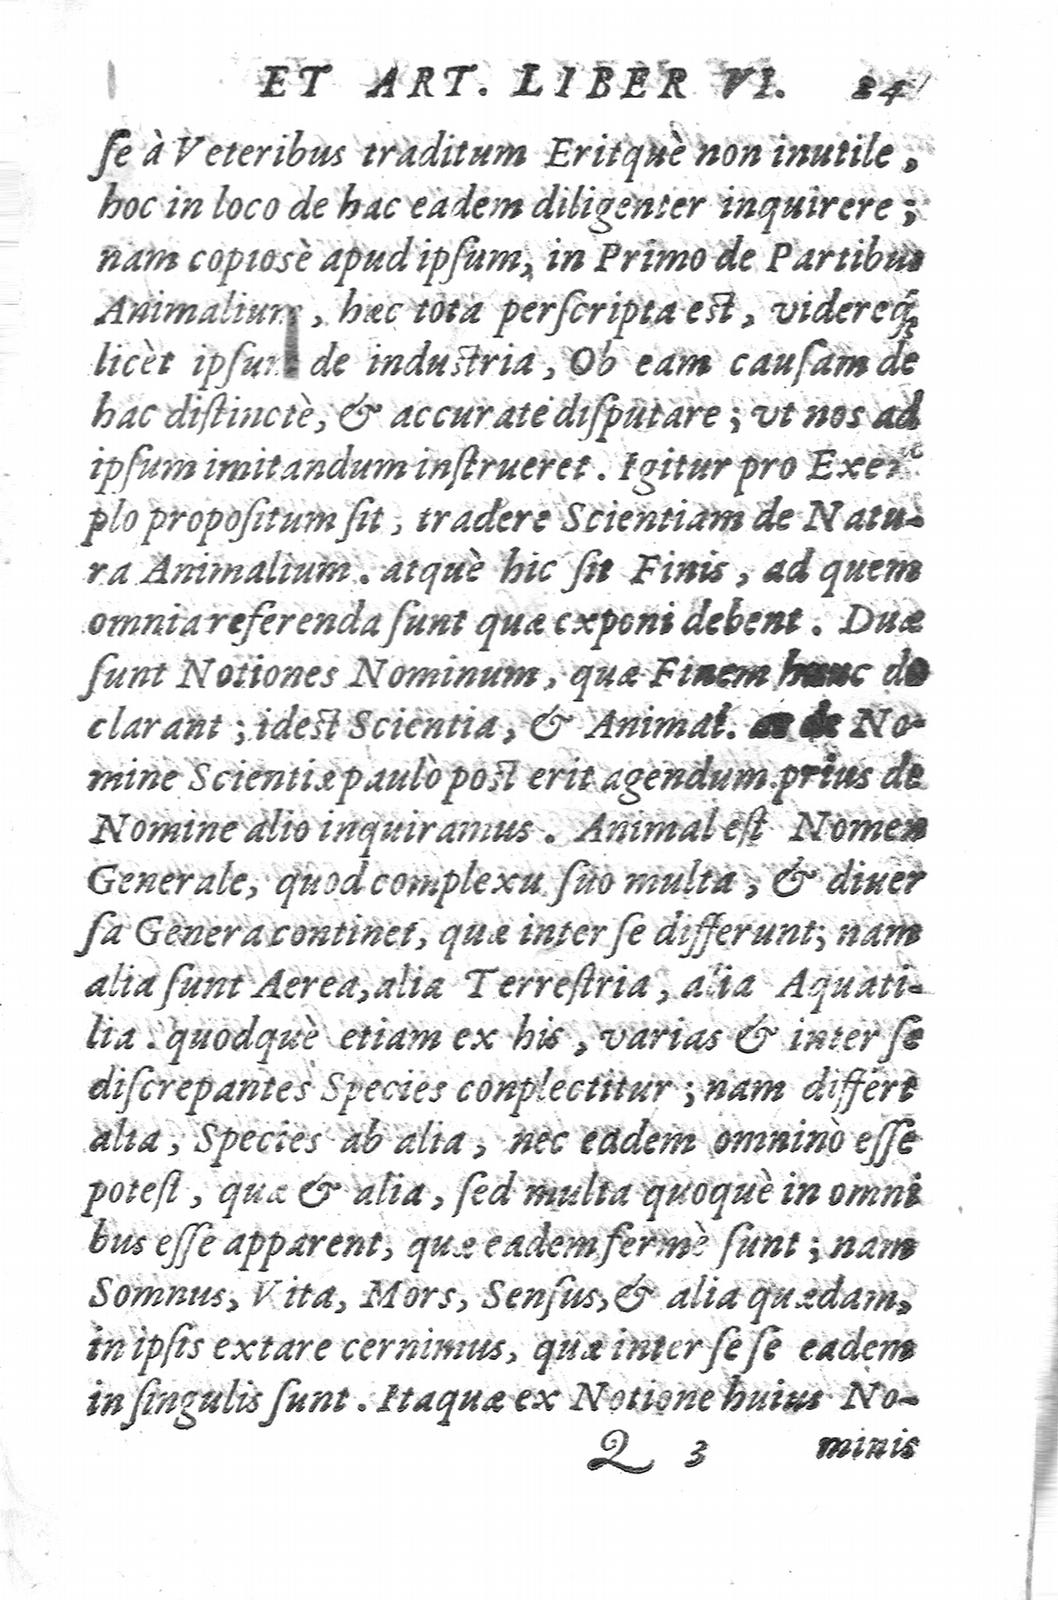 ET ART. LIBER VI. 24
ſe à Veteribus traditum Eritquè non inutile,
hoc in loco de hac eadem diligenter inquirere;
nam copiosè apud ipſum, in Primo de Partibus
Animalium, hæc tota perſcripta est, videreq;
licèt ipſum de industria, Ob eam cauſam de
hac diſtinctè, & accuratè diſputare; vt nos ad
ipſum imitandum inſtrueret. Igitur pro Exem
plo propoſitum ſit, tradere Scientiam de Natu-
ra Animalium. atquè hic ſit Finis, ad quem
omnia referenda ſunt quæ exponi debent. Duæ
ſunt Notiones Nominum, quæ Finem hunc de
clarant; idest Scientia, & Animal. ac de No-
mine Scientiæ paulò post erit agendum. prius de
Nomine alio inquiramus. Animal eſt Nomen
Generale, quod complexu ſuo multa, & diuer
ſa Genera continet, quæ inter ſe differunt; nam
alia ſunt Aerea, alia Terreſtria, alia Aquati-
lia. quodquè etiam ex his, varias & inter ſe
diſcrepantes Species conplectitur; nam differt
alia, Species ab alia, nec eadem omninò eſſe
poteſt, quæ & alia, ſed multa quoquè in omni
bus eſſe apparent, quæ eadem fermè ſunt; nam
Somnus, Vita, Mors, Senſus, & alia quædam,
in ipſis extare cernimus, quæ inter ſe ſe eadem
in ſingulis ſunt. Itaquæ ex Notione huius No-
Q 3 minis